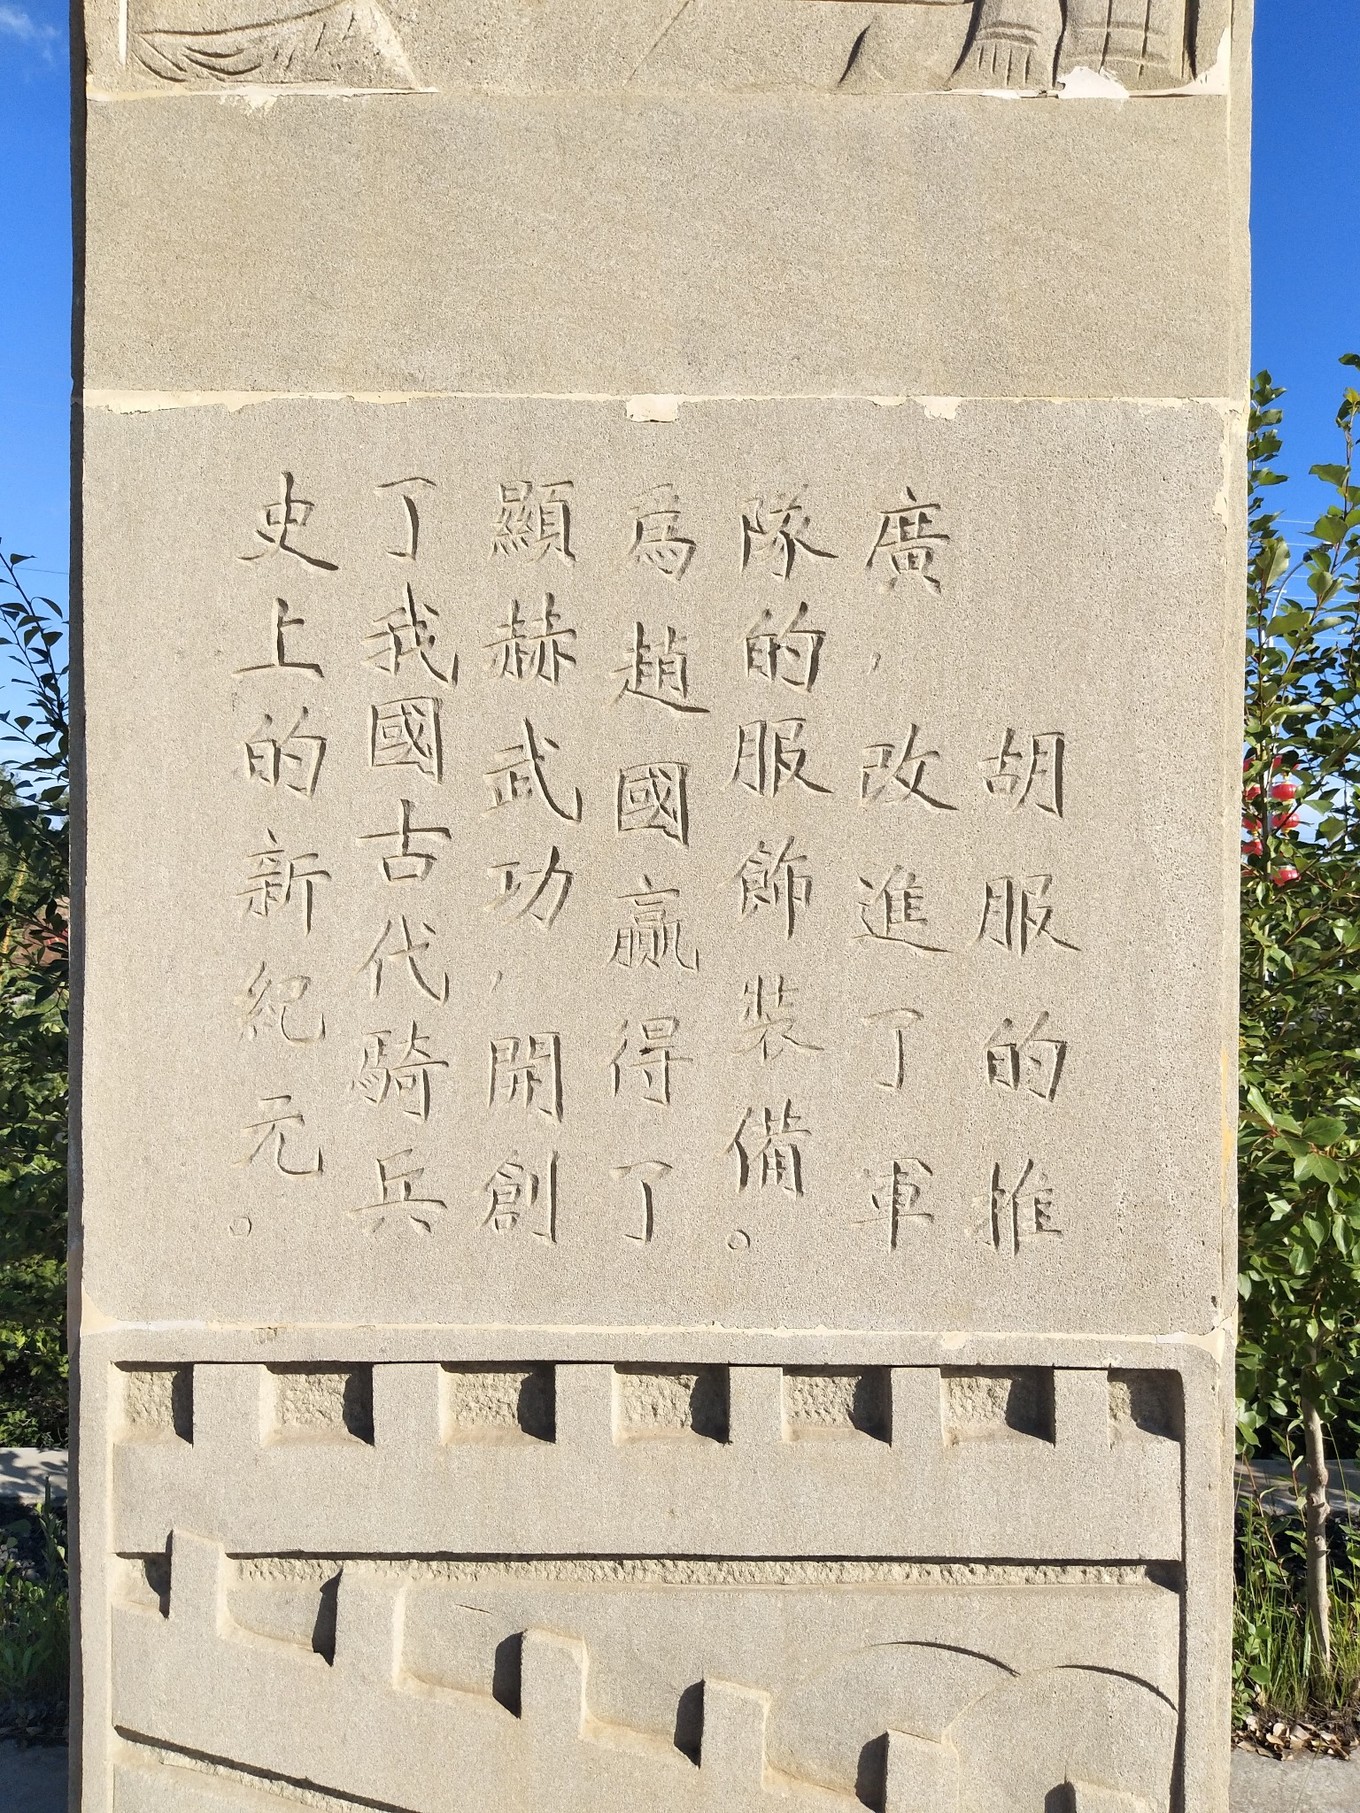 胡服的推
廣，改進了軍
隊的服飾裝備。
爲趙國贏得了
顯赫武功，開創
了我國古代騎兵
史上的新紀元。